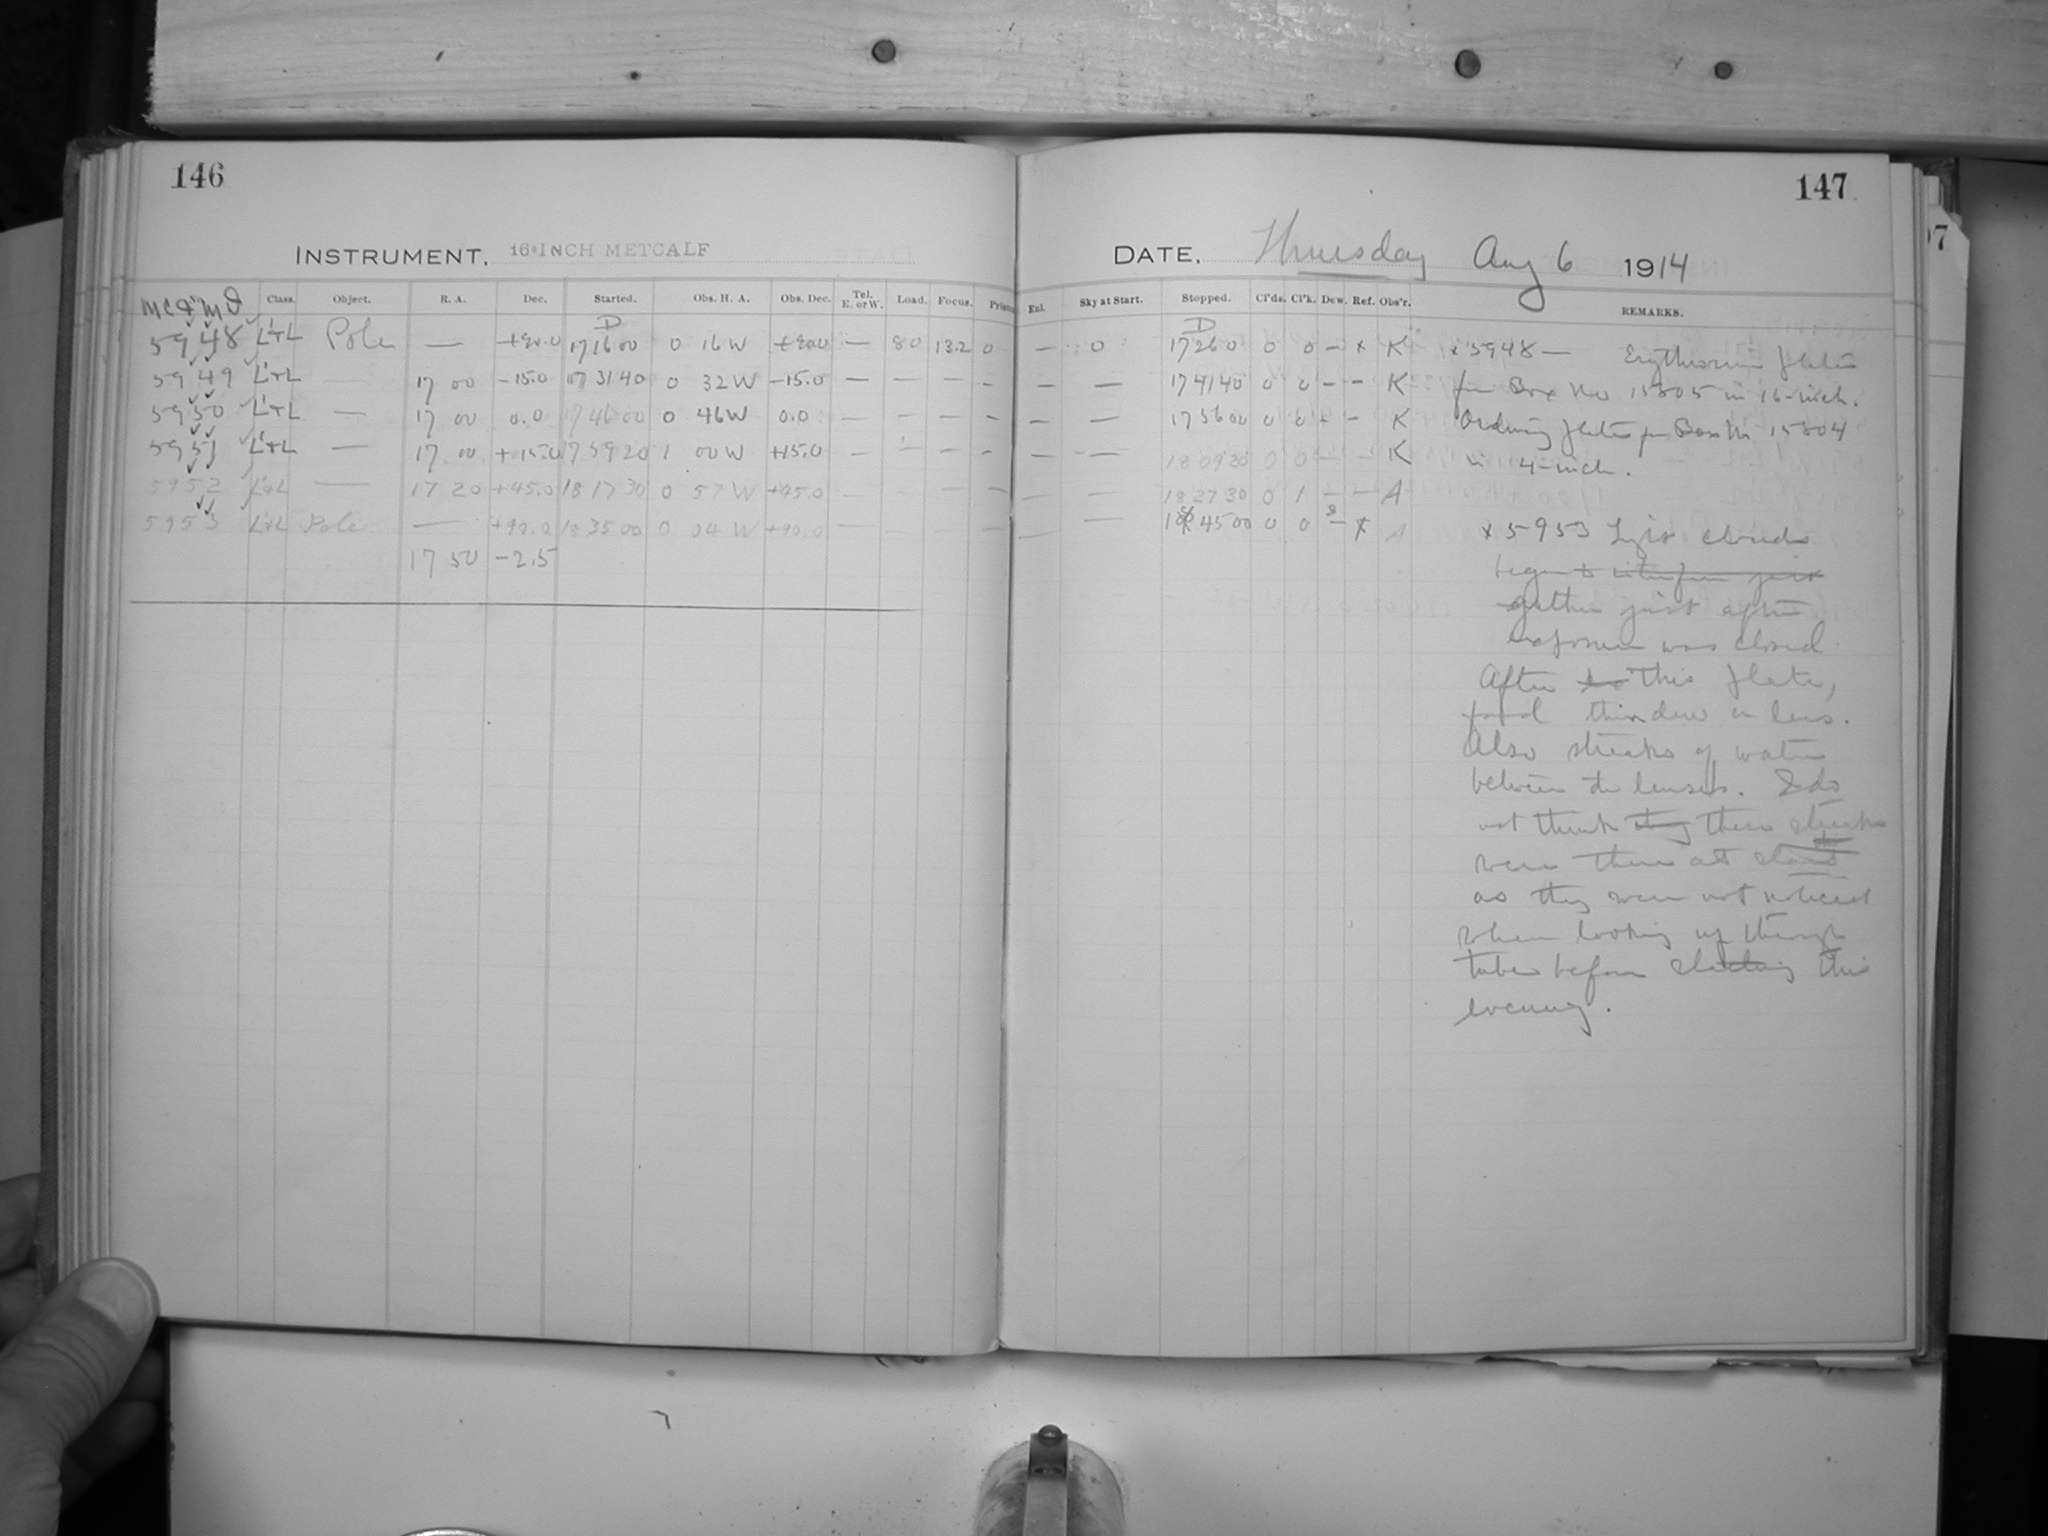 146
INSTRUMENT. 16-INCH METCALF
Class. Object. R. A. Dec. Started. Obs. H. A. Obs. Dec. Tel. E. or W. Load. Focus. Prism
5948 L+L Pole — +90.0 D 17 16 00 0 16 W +90.0 — 80 13.2 0
5949 L+L — 17 00 -15.0 17 31 40 0 32 W -15.0 — — — –
5950 L+L — 17 00 0.0 17 46 00 0 46 W 0.0 — — — –
5951 L+L — 17 00 +15.0 17 59 20 1 00 W +15.0 — — — –
5952 L+L — 17 20 +45.0 18 17 30 0 57 W +45.0 — — —
5953 L+L Pole — +90.0 18 35 00 0 04 W +90.0 — — — —
17 50 -2.5
147
DATE. Thursday Aug 6 1914
Enl. Sky at Start. Stopped. Cl'ds. Cl'k. Dew. Ref. Obs'r. REMARKS.
— 0 D 17 26 0 0 0 – x K x 5948 — plates
— — 17 41 40 0 0 – – K for Box No 15805 in 16-inch.
— — 17 56 00 0 0 – – K Ordinary plates for Box No 15804
— — 18 09 20 0 0 – – K in 4-inch.
— — 18 27 30 0 1 – – A
— — 18 45 00 0 0 – x A x 5953 Light clouds
began to interfere just
gather just after
exposure was closed.
After this plate,
found thin dew on lens.
Also streaks of water
between the lenses. I do
not think they these streaks
were there at start
as they were not noticed
when looking up through
tube before starting this
evening.